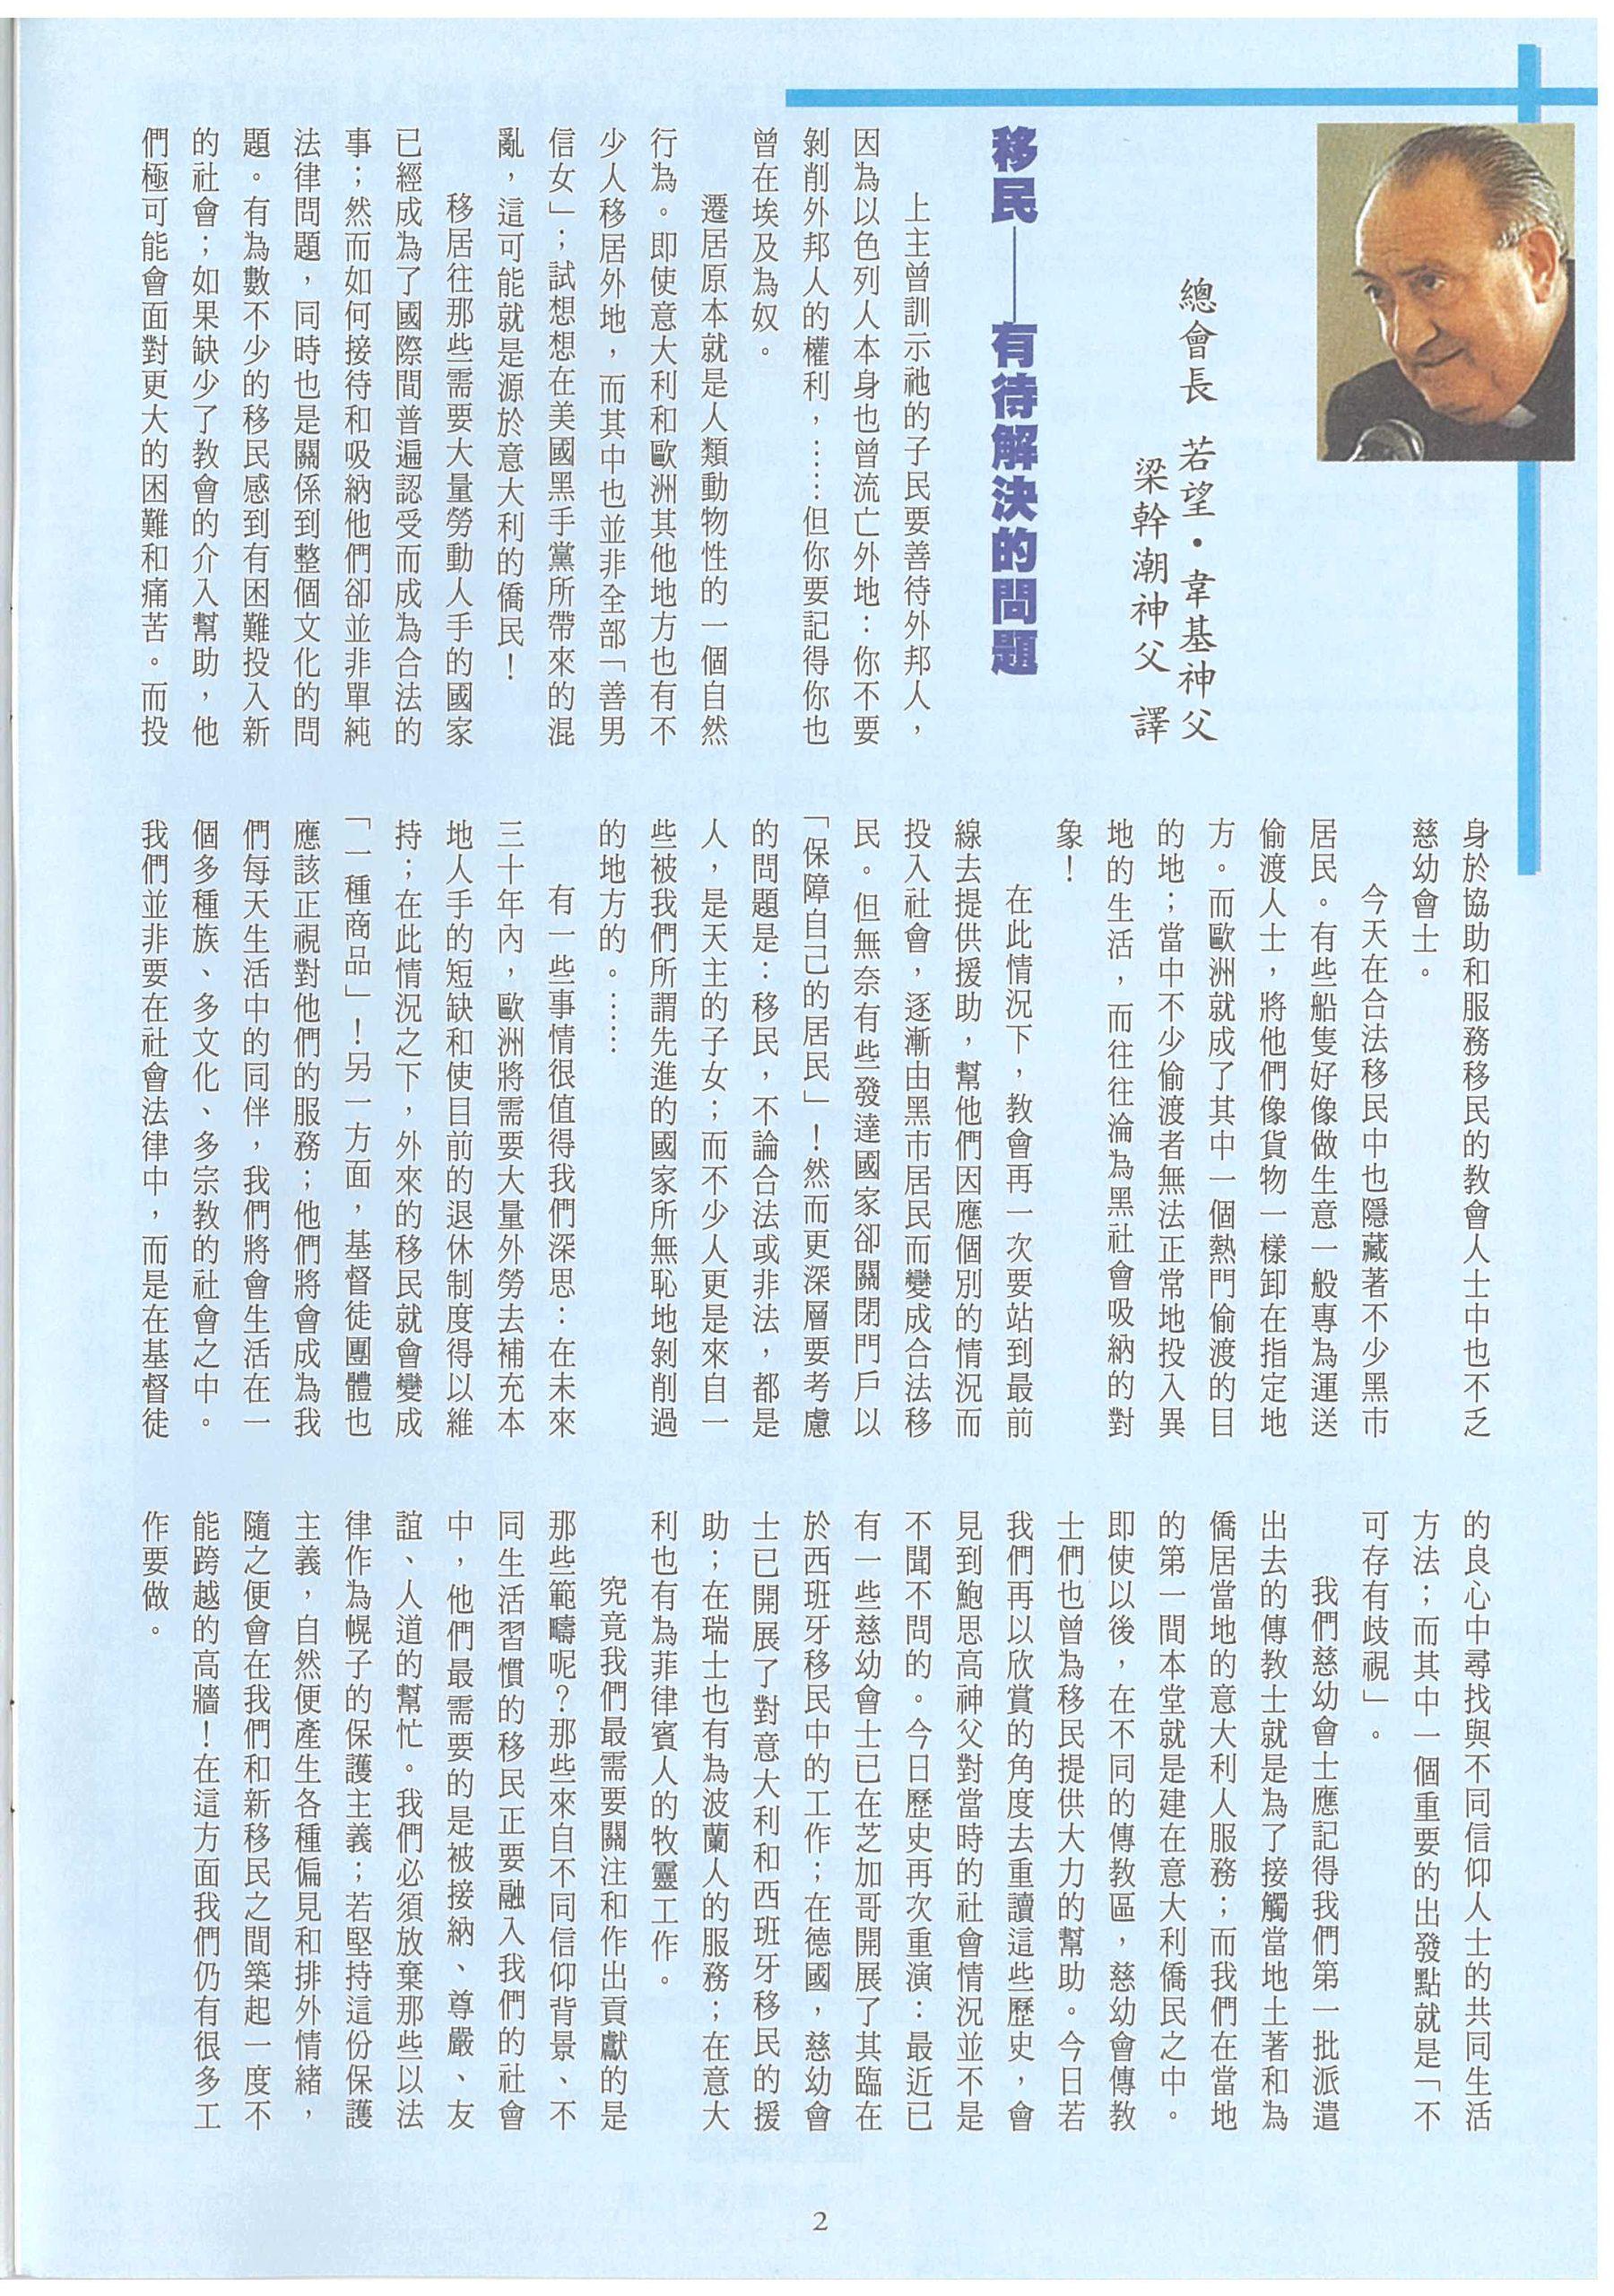 總會長 若望・韋基神父
梁幹潮神父 譯
移民——有待解決的問題
上主曾訓示祂的子民要善待外邦人，
因為以色列人本身也曾流亡外地：你不要
剝削外邦人的權利，……但你要記得你也
曾在埃及為奴。
遷居原本就是人類動物性的一個自然
行為。即使意大利和歐洲其他地方也有不
少人移居外地，而其中也並非全部「善男
信女」；試想想在美國黑手黨所帶來的混
亂，這可能就是源於意大利的僑民！
移居往那些需要大量勞動人手的國家
已經成為了國際間普遍認受而成為合法的
事；然而如何接待和吸納他們卻並非單純
法律問題，同時也是關係到整個文化的問
題。有為數不少的移民感到有困難投入新
的社會；如果缺少了教會的介入幫助，他
們極可能會面對更大的困難和痛苦。而投
身於協助和服務移民的教會人士中也不乏
慈幼會士。
今天在合法移民中也隱藏著不少黑市
居民。有些船隻好像做生意一般專為運送
偷渡人士，將他們像貨物一樣卸在指定地
方。而歐洲就成了其中一個熱門偷渡的目
的地；當中不少偷渡者無法正常地投入異
地的生活，而往往淪為黑社會吸納的對
象！
在此情況下，教會再一次要站到最前
線去提供援助，幫他們因應個別的情況而
投入社會，逐漸由黑市居民而變成合法移
民。但無奈有些發達國家卻關閉門戶以
「保障自己的居民」！然而更深層要考慮
的問題是：移民，不論合法或非法，都是
人，是天主的子女；而不少人更是來自一
些被我們所謂先進的國家所無恥地剝削過
的地方的。……
有一些事情很值得我們深思：在未來
三十年內，歐洲將需要大量外勞去補充本
地人手的短缺和使目前的退休制度得以維
持；在此情況之下，外來的移民就會變成
「一種商品」！另一方面，基督徒團體也
應該正視對他們的服務；他們將會成為我
們每天生活中的同伴，我們將會生活在一
個多種族、多文化、多宗教的社會之中。
我們並非要在社會法律中，而是在基督徒
的良心中尋找與不同信仰人士的共同生活
方法；而其中一個重要的出發點就是「不
可存有歧視」。
我們慈幼會士應記得我們第一批派遣
出去的傳教士就是為了接觸當地土著和為
僑居當地的意大利人服務；而我們在當地
的第一間本堂就是建在意大利僑民之中。
即使以後，在不同的傳教區，慈幼會傳教
士們也曾為移民提供大力的幫助。今日若
我們再以欣賞的角度去重讀這些歷史，會
見到鮑思高神父對當時的社會情況並不是
不聞不問的。今日歷史再次重演：最近已
有一些慈幼會士已在芝加哥開展了其臨在
於西班牙移民中的工作；在德國，慈幼會
士已開展了對意大利和西班牙移民的援
助；在瑞士也有為波蘭人的服務；在意大
利也有為菲律賓人的牧靈工作。
究竟我們最需要關注和作出貢獻的是
那些範疇呢？那些來自不同信仰背景、不
同生活習慣的移民正要融入我們的社會
中，他們最需要的是被接納、尊嚴、友
誼、人道的幫忙。我們必須放棄那些以法
律作為幌子的保護主義；若堅持這份保護
主義，自然便產生各種偏見和排外情緒，
隨之便會在我們和新移民之間築起一度不
能跨越的高牆！在這方面我們仍有很多工
作要做。
2